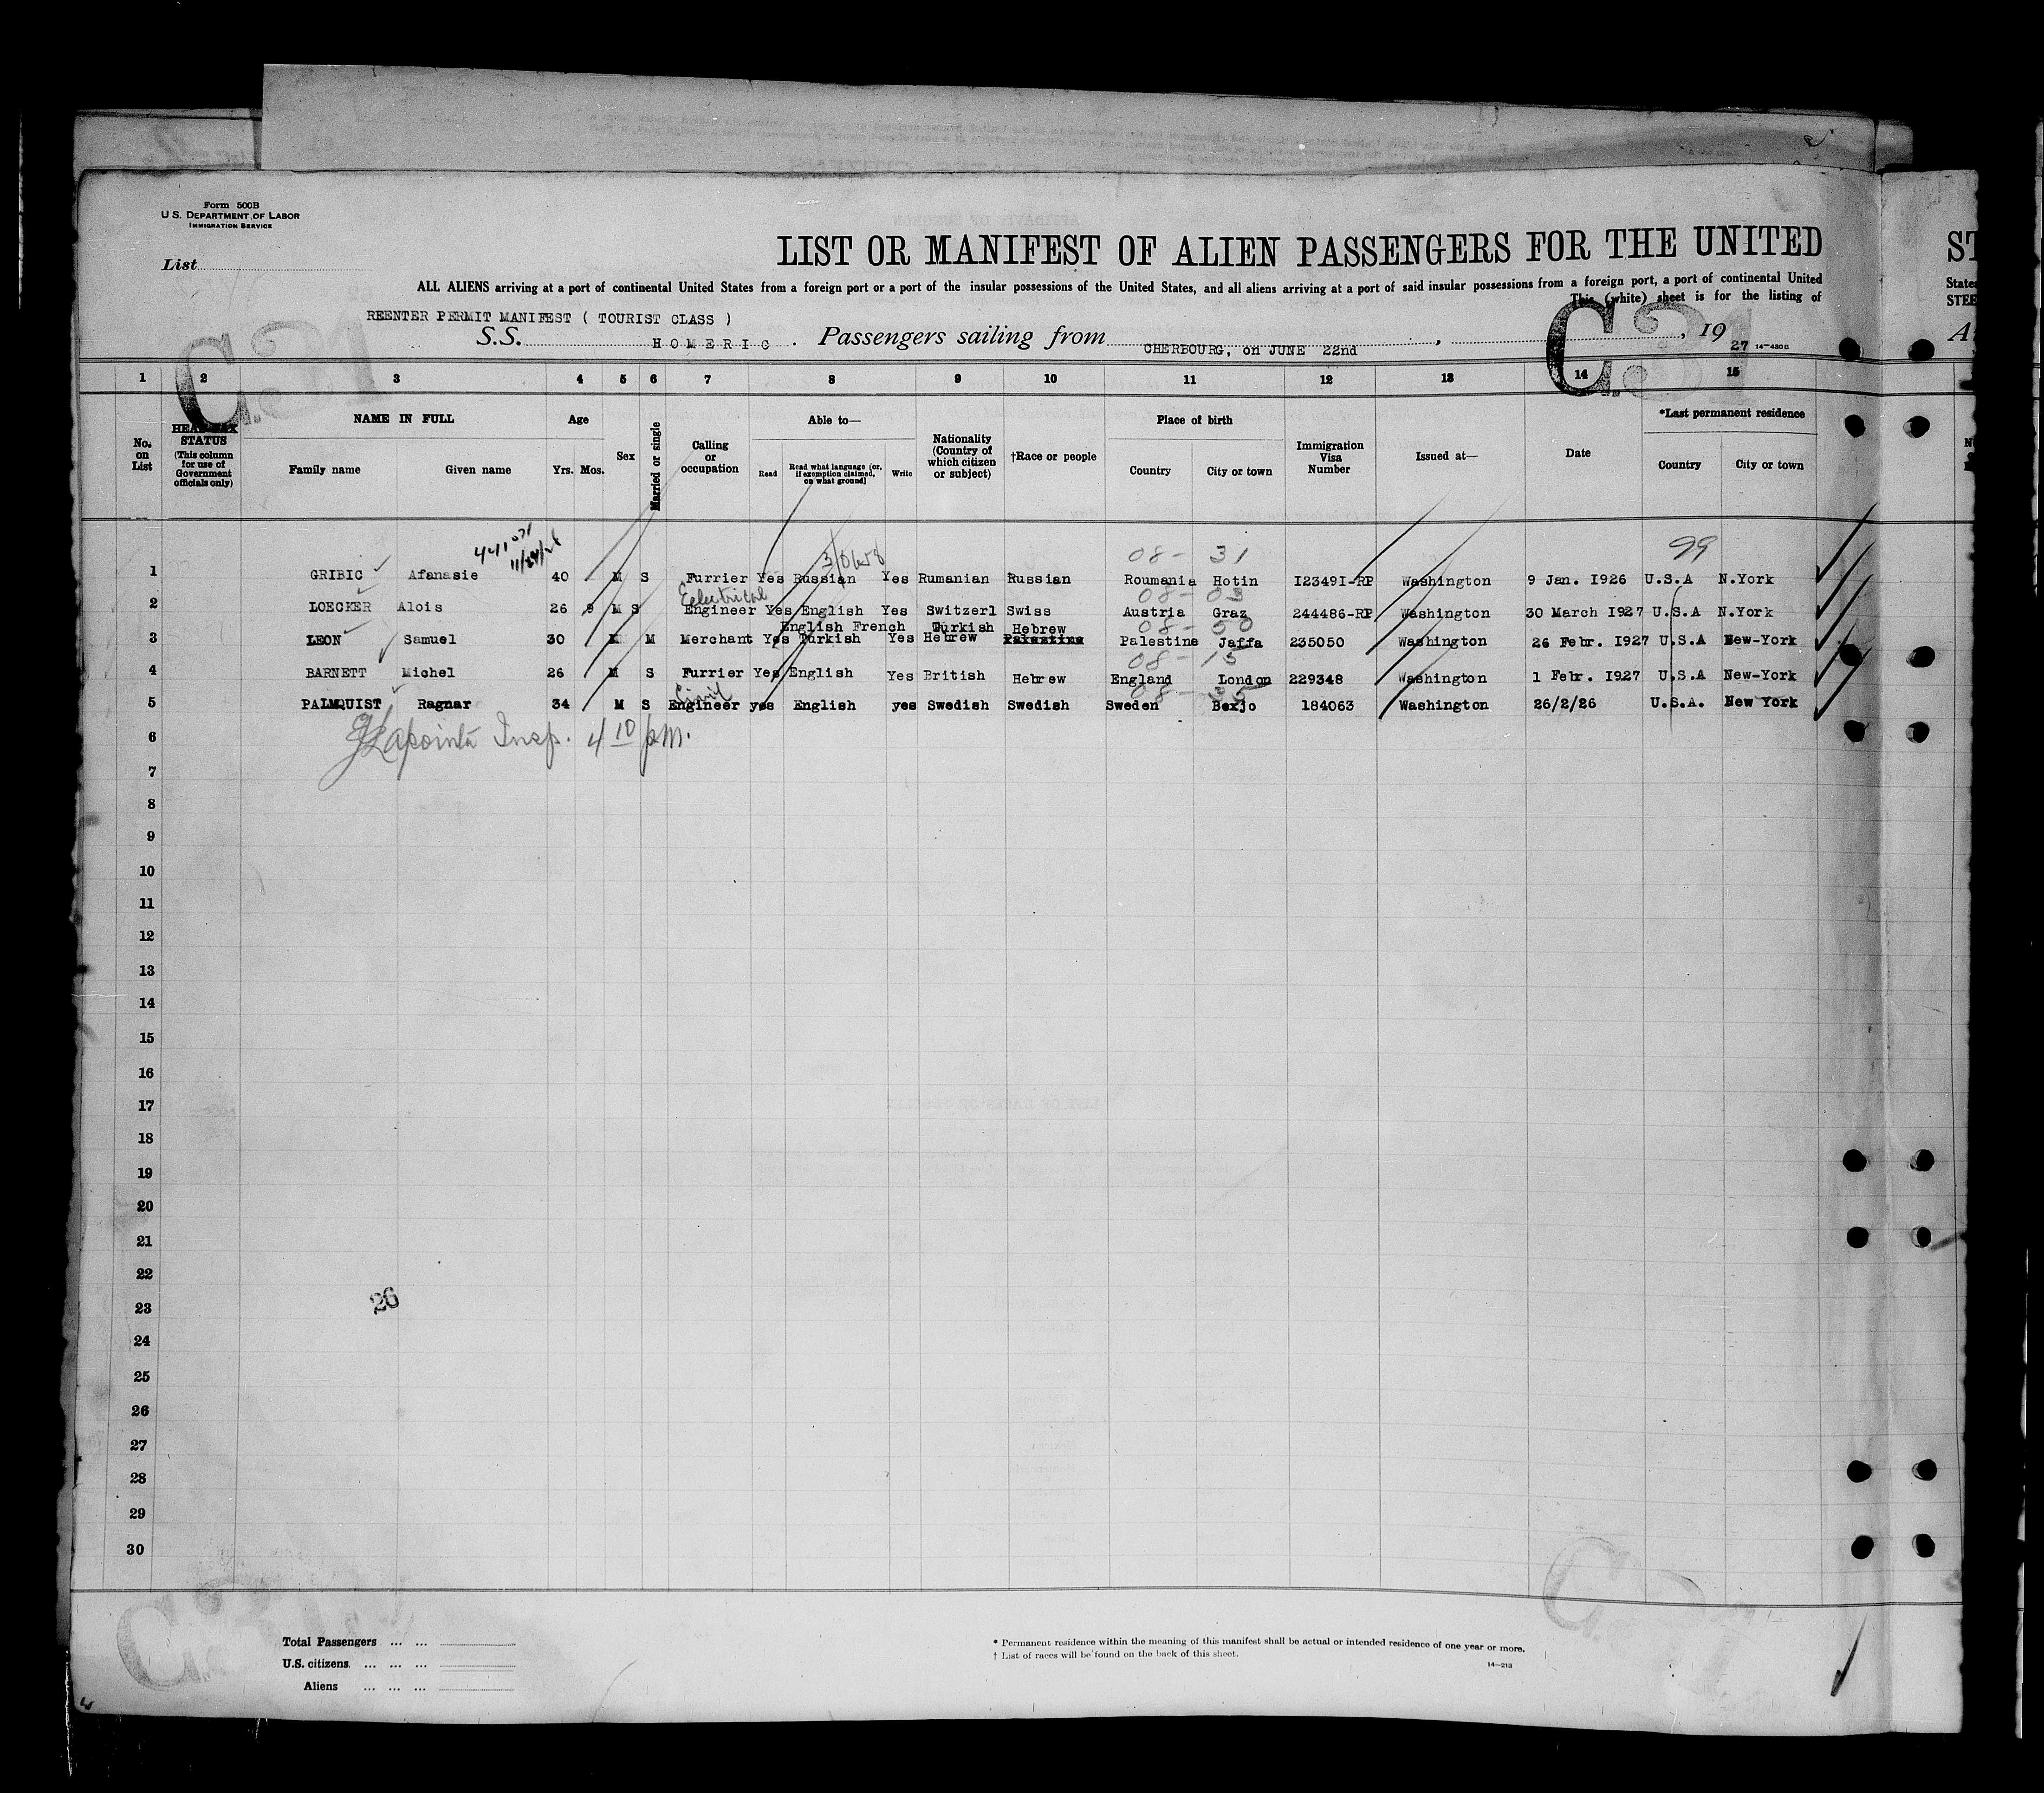 Form 500B
U.S. DEPARTMENT OF LABOR
IMMIGRATION SERVICE
List
LIST OR MANIFEST OF ALIEN PASSENGERS FOR THE UNITED
ST
ALL ALIENS arriving at a port of continental United States from a foreign port or a port of the insular possessions of the United States, and all aliens arriving at a port of said insular possessions from a foreign port, a port of continental United
This (white) sheet is for the listing of
States
STEE
REENTER PERMIT MANIFEST ( TOURIST CLASS )
S.S. HOMERIC. Passengers sailing from CHERBOURG, on JUNE 22nd, , 1927 14-430B
C.31
1 2 3 4 5 6 7 8 9 10 11 12 13 14 15
No. on List
HEAD-TAX STATUS (This column for use of Government officials only)
NAME IN FULL
Family name Given name
Age
Yrs. Mos.
Sex
Married or single
Calling or occupation
Able to—
Read
Read what language [or, if exemption claimed, on what ground]
Write
Nationality (Country of which citizen or subject)
†Race or people
Place of birth
Country City or town
Immigration Visa Number
Issued at—
Date
*Last permanent residence
Country City or town
11/24/26
08- 31
99
1 GRIBIC Afanasie 40 M S Furrier Yes Russian Yes Rumanian Russian Roumania Hotin I2349I-RP Washington 9 Jan. I926 U.S.A N.York
Electrical 08-03
2 LOECKER Alois 26 9 M S Engineer Yes English Yes Switzerl Swiss Austria Graz 244486-RP Washington 30 March I927 U.S.A N.York
English French Turkish Hebrew 08-50
3 LEON Samuel 30 M M Merchant Yes Turkish Yes Hebrew Palestine Palestine Jaffa 235050 Washington 26 Febr. I927 U.S.A New-York
08-15
4 BARNETT Michel 26 M S Furrier Yes English Yes British Hebrew England London 229348 Washington 1 Febr. I927 U.S.A New-York
Civil 08-35
5 PALMQUIST Ragnar 34 M S Engineer yes English yes Swedish Swedish Sweden Bexjo 184063 Washington 26/2/26 U.S.A. New York
6 Lapointe Insp. 4 10 p.m.
7
8
9
10
11
12
13
14
15
16
17
18
19
20
21
22
23
26
24
25
26
27
28
29
30
Total Passengers ... ...
U.S. citizens ... ... ...
Aliens ... ... ...
* Permanent residence within the meaning of this manifest shall be actual or intended residence of one year or more.
† List of races will be found on the back of this sheet.
14-213